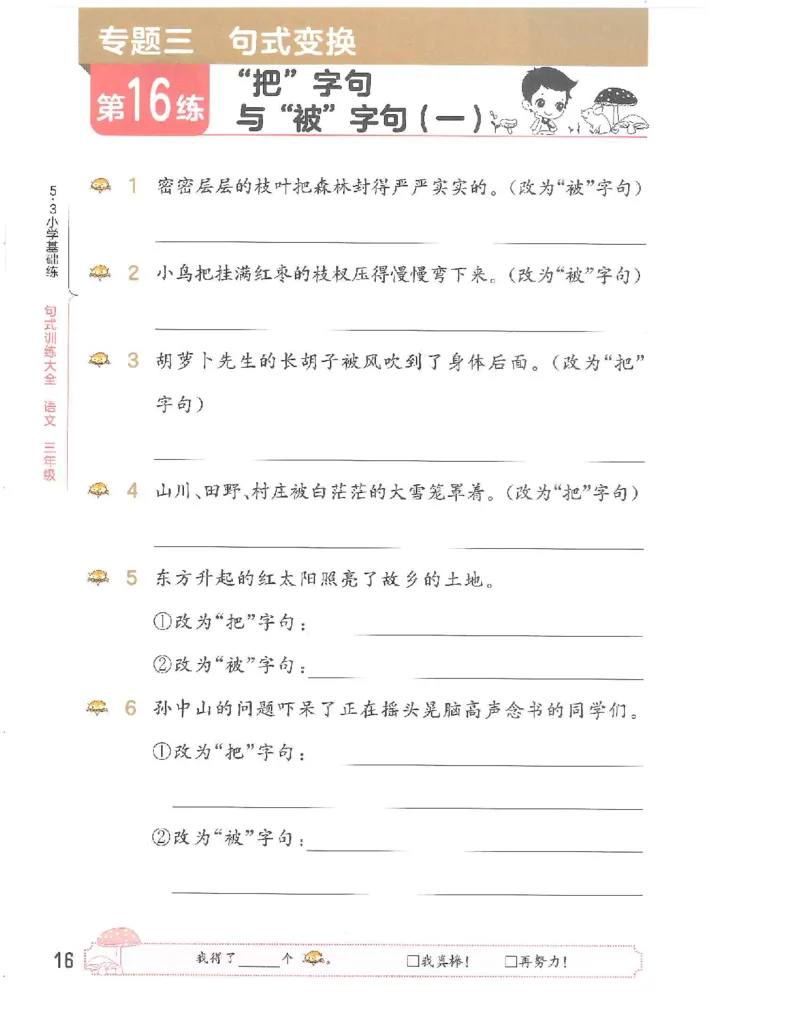 专题三 句式变换
第16练
“把”字句
与“被”字句(一)
5·3小学基础练
句式训练大全 语文 三年级
1 密密层层的枝叶把森林封得严严实实的。(改为“被”字句)
2 小鸟把挂满红枣的枝杈压得慢慢弯下来。(改为“被”字句)
3 胡萝卜先生的长胡子被风吹到了身体后面。(改为“把”
字句)
4 山川、田野、村庄被白茫茫的大雪笼罩着。(改为“把”字句)
5 东方升起的红太阳照亮了故乡的土地。
①改为“把”字句:
②改为“被”字句:
6 孙中山的问题吓呆了正在摇头晃脑高声念书的同学们。
①改为“把”字句:
②改为“被”字句:
16
我得了____个。 □我真棒! □再努力!